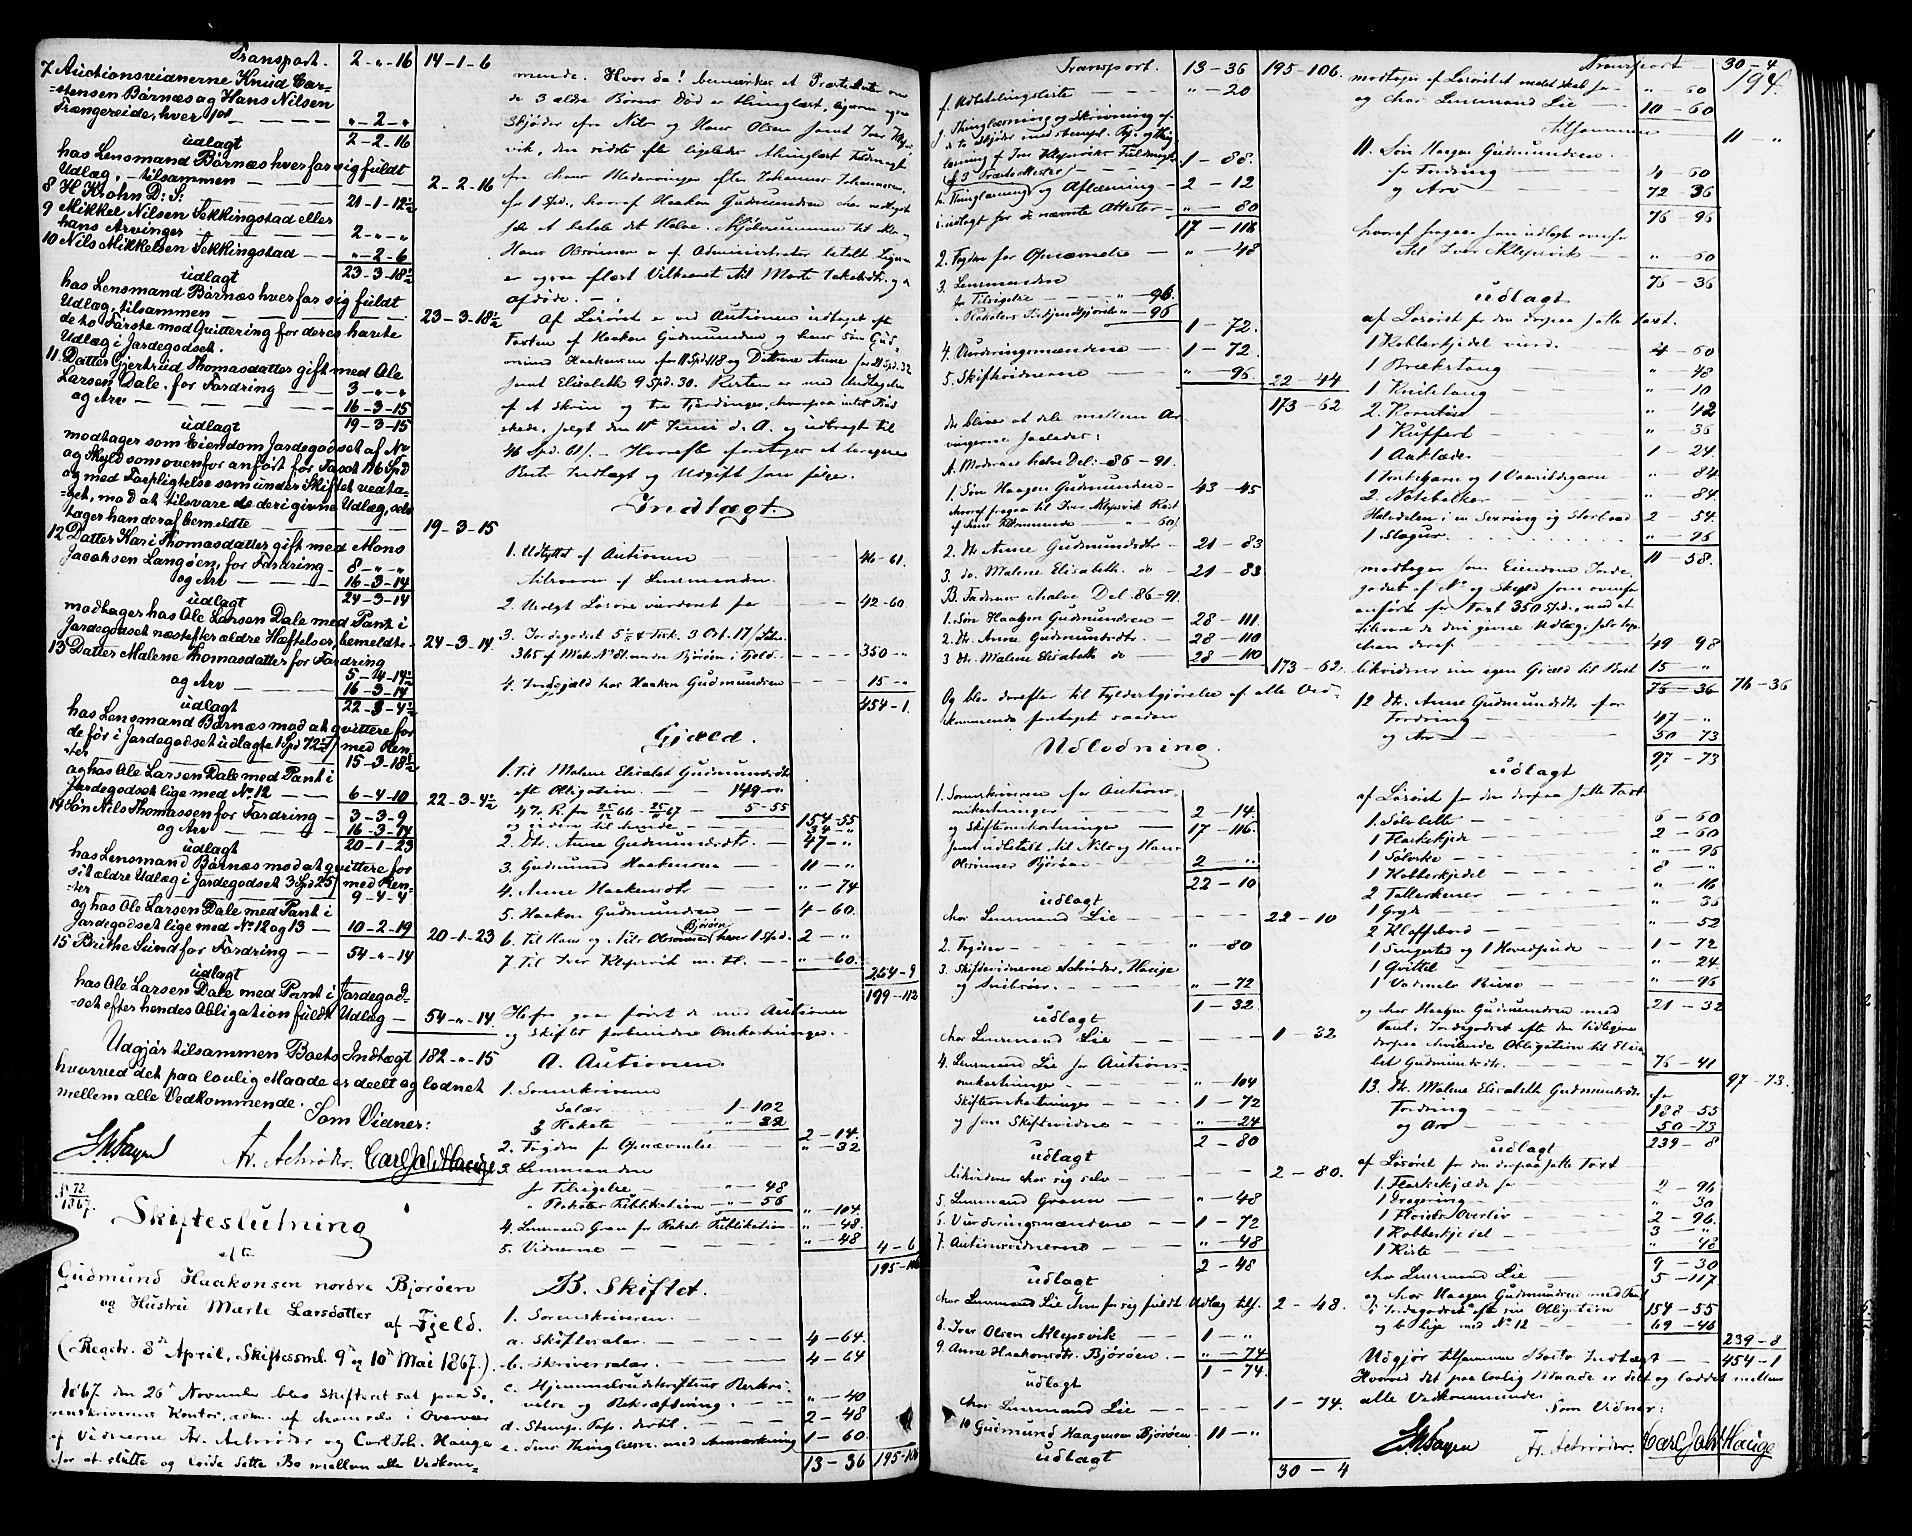 Transport. 2-"-16 14-1-6
7 Auctionsvidnerne Knud Car-
-stensen Børnæs og Hans Nilsen
Trængereide, hver 1 ort "-2-"
2-2-16
udlagt
hos Lensmand Børnæs hver for sig fuldt
Udlæg, - tilsammen 2-2-16
8 H. Krohn D: S: 21-1-12½
9 Mikkel Nilsen Sekkingstad eller
hans Arvinger 2-"-"
10 Nils Mikkelsen Sekkingstad "-2-6
23-3-18½
udlagt
hos Lensmand Børnæs hver for sig fuldt
Udlæg, tilsammen 23-3-18½
de to Første mod Qvittering for deres havte
Udlæg i Jordegodset.
11. Datter Gjertrud Thomasdatter gift med Ole
Larsen Dale, for Fordring 3-"-"
og Arv 16-3-15
19-3-15
udlagt
modtager som Eiendom Jordegodset af No
og Skyld som ovenfor anført for Taxt 116 Spd
og med Forpligtelse som under Skiftet vedta-
-get, mod at tilsvare de deri givne Udlæg, selv
tager han deraf bemeldte 19-3-15
12 Datter Kari Thomasdatter gift med Mons
Jacobsen Langøen, for Fordring 8-"-"
og Arv 16-3-14
24-3-14
udlagt
modtager hos Ole Larsen Dale med Pant i
Jordegodset næstefter ældre Hæftelser, bemeldte 24-3-14
13 Datter Malene Thomasdatter for Fordring
5-4-14½
og Arv 16-3-14
22-3-4½
udlagt
hos Lensmand Børnæs mod at qvittere for
de før i Jordegodset udlagte 1 Spd 72 med Ren-
ter 15-3-18½
og hos Ole Larsen Dale med Pant i
Jordegodset lige med No 12 6-4-10 22-3-4½
14 Søn Nils Thomassen for Fordring 3-3-9
og Arv 16-3-14
20-1-23
udlagt
hos Lensmand Børnæs mod at qvittere for
sit ældre Udlæg i Jordegodset 3 Spd 25 med Ren-
ter 9-4-4
og hos Ole Larsen Dale med Pant i
Jordegodset lige med No 12 og 13 10-2-19 20-1-23
15 Brithe Sund for Fordring 54-"-14
udlagt
hos Ole Larsen Dale med Pant i Jordegod-
-set efter hendes Obligation fuldt Udlæg 54-"-14
Udgjør tilsammen Boets Indtægt 182-"-15
hvorved det paa lovlig Maade er deelt og lodnet
mellem alle Vedkommende.
Som Vidner:
Fr. Schrøder. Carl Joh. Hauge
No 72/1867.
Skifteslutning
efter
Gudmund Haakonsen nordre Bjorøen
og Hustru Marte Larsdatter af Fjeld.
(Registr. 8de April, Skiftessml. 9de og 10de Mai 1867.)
Aar 67 den 26de November blev Skifteret sat paa So-
renskriverens Kontor, adm. af samme i Overvær
af Vidnerne Fr. Schrøder og Carl Joh. Hauge
for at slutte og lodde dette Bo mellem alle Vedkom-
mende. Hvor da! bemærkes at Proteskate om
de 3 ældre Børns Død er thinglæst, ligesom ogsaa
Skjøder fra Nils og Hans Olsen samt Iver Klep-
vik, den sidste efter ligeledes thinglæst Fuldmagt
for 1 Spd., hvoraf Haakon Gudmundsen har vedtaget
selv at betale det Halve.
afdøde. -
Af Løsøret er ved Auctionen udtaget efter
Taxten af Haakon Gudmundsen og hans Søn Gud-
mund Haakensen for 11 Spd. 118 og Datteren Anne for 21 Spd. 32
samt Elisabeth 9 Spd. 30. Resten er med Undtagelse
af et Skrin og tre Fjerdinger, hvorpaa intet Bud
skede, solgt den 11te Juni d. A. og udbragt til
46 Spd. 61/. - Herefter foretoges at beregne
Boets Indtægt og Udgift som følger.
Indtægt.
1. Udbyttet af Auctionen 46-61.
tilsvares af Lensmanden.
2. Udlagt Løsøre vurderet for 42-60
3. Jordegodset 5/6 & Fisk. 3 Ort. 17/ Løbe-
365 af Mat. No 81. nordre Bjorøen i Fjeld 350 -"
4. Indgjæld hos Haaken Gudmundsen 15 -"
454-1.
Gjæld.
1. Til Malene Elisabet Gudmundsdtr
eft Obligation 149-"
4% R. fra 25/12 66 - 25/11 67 5-55
154-55
34-"
2. Dtr. Anne Gudmundsdtr. 47-"
3. Gudmund Haakensen 11-"
4. Anne Haakensdtr "-74
5. Haakon Gudmundsen 4-60.
6. Til Hans og Nils Olsønner Bjorøen hver 1 Spd. 2-"
7. Til Iver Klepsvik m. fl. "-60.
254-9
199-112
Herfra gaar først de med Auctionen
og Skiftet forbundne Omkostninger.
A. Auctionen
1. Sorenskriveren
Salær 1-102
3 Plakate "-32
2-14.
2. Fogden for Opnævnelse "-32
3. Lensmanden
for Tilsigelse "-48
" Plakaters Publikation "-56
"-104.
4. Lensmand Gran for Plakat Publikation "-48
5. Vidnerne "-48
4-6
195-106
B. Skiftet.
1. Sorenskriveren.
a. Skiftesalær 4-64.
b. Skriversalær. 4-64
c. Hjemmelsudskriftens Beskri-
velse og Bekræftning. "-40
d. Stempl. Pap. dertil. 2-48
e. dens Thinglæsn. med Anmærkning 1-60.
13-36 195-106
Transport. 13-36 195-106.
f. Udbetalingsliste "-20
g. Thinglæsning og Skrivning af
de to Skjøder med stempl. Pap. og Thing-
læsning af Iver Klepsviks Fuldmagt 1-88.
af 3 Proclamattester
h. Thinglæsning og Aflæsning 2-12
i. udlagt for de nævnte Attester "-80
17-116
2. Fogden for Opnævnelse "-48
3. Lensmanden
for Tilsigelse "-96.
" -96
1-72.
4. Vurderingsmændene 1-72.
5. Skiftevidnerne "-96.
22-44
173-62
der bliver at dele mellem Ar-
vingerne saaledes:
A. Moderens halve Del: 86-91.
1. Søn Haagen Gudmundsen 43-45
hvoraf fragaar til Iver Klepsvik Rest
2. Dtr. Anne Gudmundsdtr. 21-83
3. do. Malene Elisabeth. do 21-83
B. Faderens halve Del. 86-91.
1. Søn Haagen Gudmundsen 28-111
2. Dtr. Anne Gudmundsdtr. 28-110
3 Dtr. Malene Elisabeth do 28-110
173-62.
Og blev derefter til Fyldestgjørelse af alle Ved-
kommende foretaget saadan
Udlodning.
1. Sorenskriveren for Auctions-
omkostninger 2-14.
og Skifteomkostninger 17-116.
samt udbetalt til Nils og Hans
Olsønner Bjorøen 2-"
22-10
udlagt
hos Lensmand Lie 22-10
2. Fogden "-80
3. Skiftevidnerne Schrøder, Hauge
"-72
1-32
udlagt
hos Lensmand Lie 1-32
4. Lensmand Lie for Auctions-
omkostninger "-104
Skifteomkostninger 1-72
og som Skiftevidne "-24
2-80
udlagt
likviderer hos sig selv 2-80.
5. Lensmand Grann "-48
6. Vurderingsmændene 1-72
7. Auctionsvidnerne "-48
2-48
udlagt
hos Lensmand Lie hver for sig fuldt Udlæg tils. 2-48.
8. Iver Olsen Klepsvik 1-"
9. Anne Haakonsdtr. Bjorøen "-74
1-74.
udlagt
hos Lensmand Lie 1-74.
10 Gudmund Haagensen Bjorøen 11-"
udlagt
30-4
Transport 30-4
194.
modtager af Løsøret "-60
og hos Lensmand Lie 10-60
tilsammen 11-"
11. Søn Haagen Gudmundsen
for Fordring 4-60
og Arv 72 36
76-96
hvoraf fragaar som udlagt ovenfor
til Iver Klepsvik "-60
76-36
udlagt
af Løsøret for den derpaa satte Taxt.
1 Kobberkjedel vurd. 4-60
1 Brækstang "48
1 Knibtang "10
2. Korntøre "42
1 Kuffert "36
1 Aaklæde 1-24
1 Torskegarn og 1 Vaarsildgarn "84
2. Notebelker "84
Halvdelen i en Sexring og Storbaad 2 54.
1 Slagur "96
11-58.
modtager som Eiendom Jorde-
godset af No og Skyld som ovenfor
anført for Taxt 350 Spd., mod at
tilsvare de deri givne Udlæg, selv tager
han deraf 49 98
likviderer sin egen Gjæld til Boet 15-"
76-36 76-36
12 Dtr. Anne Gudmundsdtr for
Fordring 47-"
og Arv 50 73
97-73
udlagt
af Løsøret for den derpaa satte Taxt
1. Sølvbelte 6-60
1 Halskjede 2-60
1 Sølvske "-96
1 Kobberkjedel 8-"
2 Tallerkener "-16
1 Gryde "36
2 Klapbord "52
1 Sengested og 1 Hovedpude 1-72
1 Qvittel "-24
"-96
og hos Haagen Gudmundsen med 21-32
Pant i Jordegodset efter den tidligere
derpaa hvilende Obligation til Elisa-
bet Gudmundsdtr. 76-41
97-73.
13. Dtr. Malene Elisabeth Gudmundsdtr for
Fordring 188-55
og Arv 50-73
239-8
udlagt
af Løsøret for den derpaa satte Taxt
1. Halskjede for 2-96
"30
2-96.
1 Kobberkjedel 3-"
1 Kiste "48
9-30
hos Lensmand Lie 5-117
og hos Haagen Gudmundsen med Pant
i Jordegodset efter sin Obligation 154-55
og lige med No 12 69-46
239-8
Udgjør tilsammen Boets Indtægt 454-1
Hvorved det paa lovlig Maade er delt og loddet mellem
alle Vedkommende.
Som Vidner:
Fr. Schrøder. Carl Joh Hauge